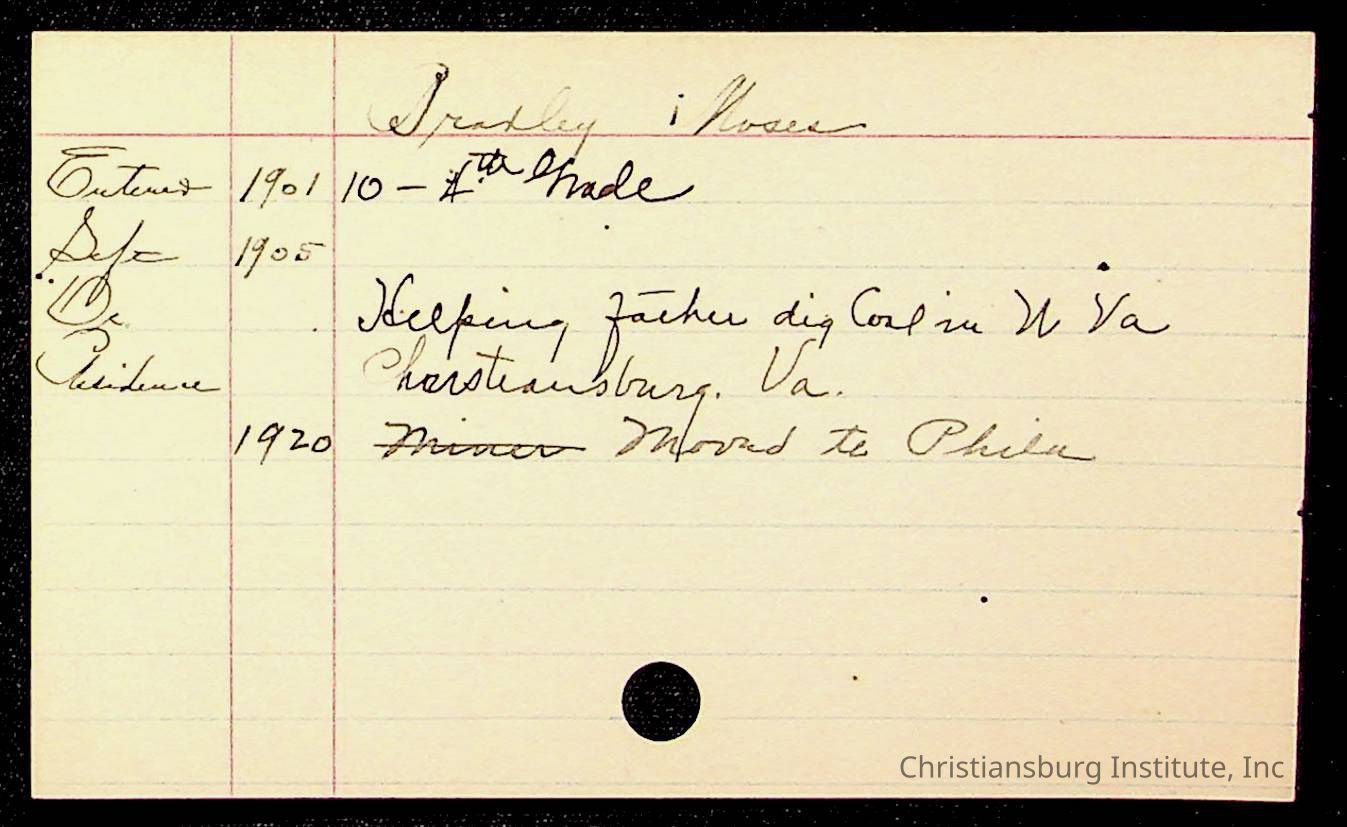 Bradley Moses
Entered 1901 10 - 4th Grade
Left 1905
Oc. Helping father dig Coal in W Va
Residence Christiansburg. Va.
1920 Miner Moved to Phila
Christiansburg Institute, Inc